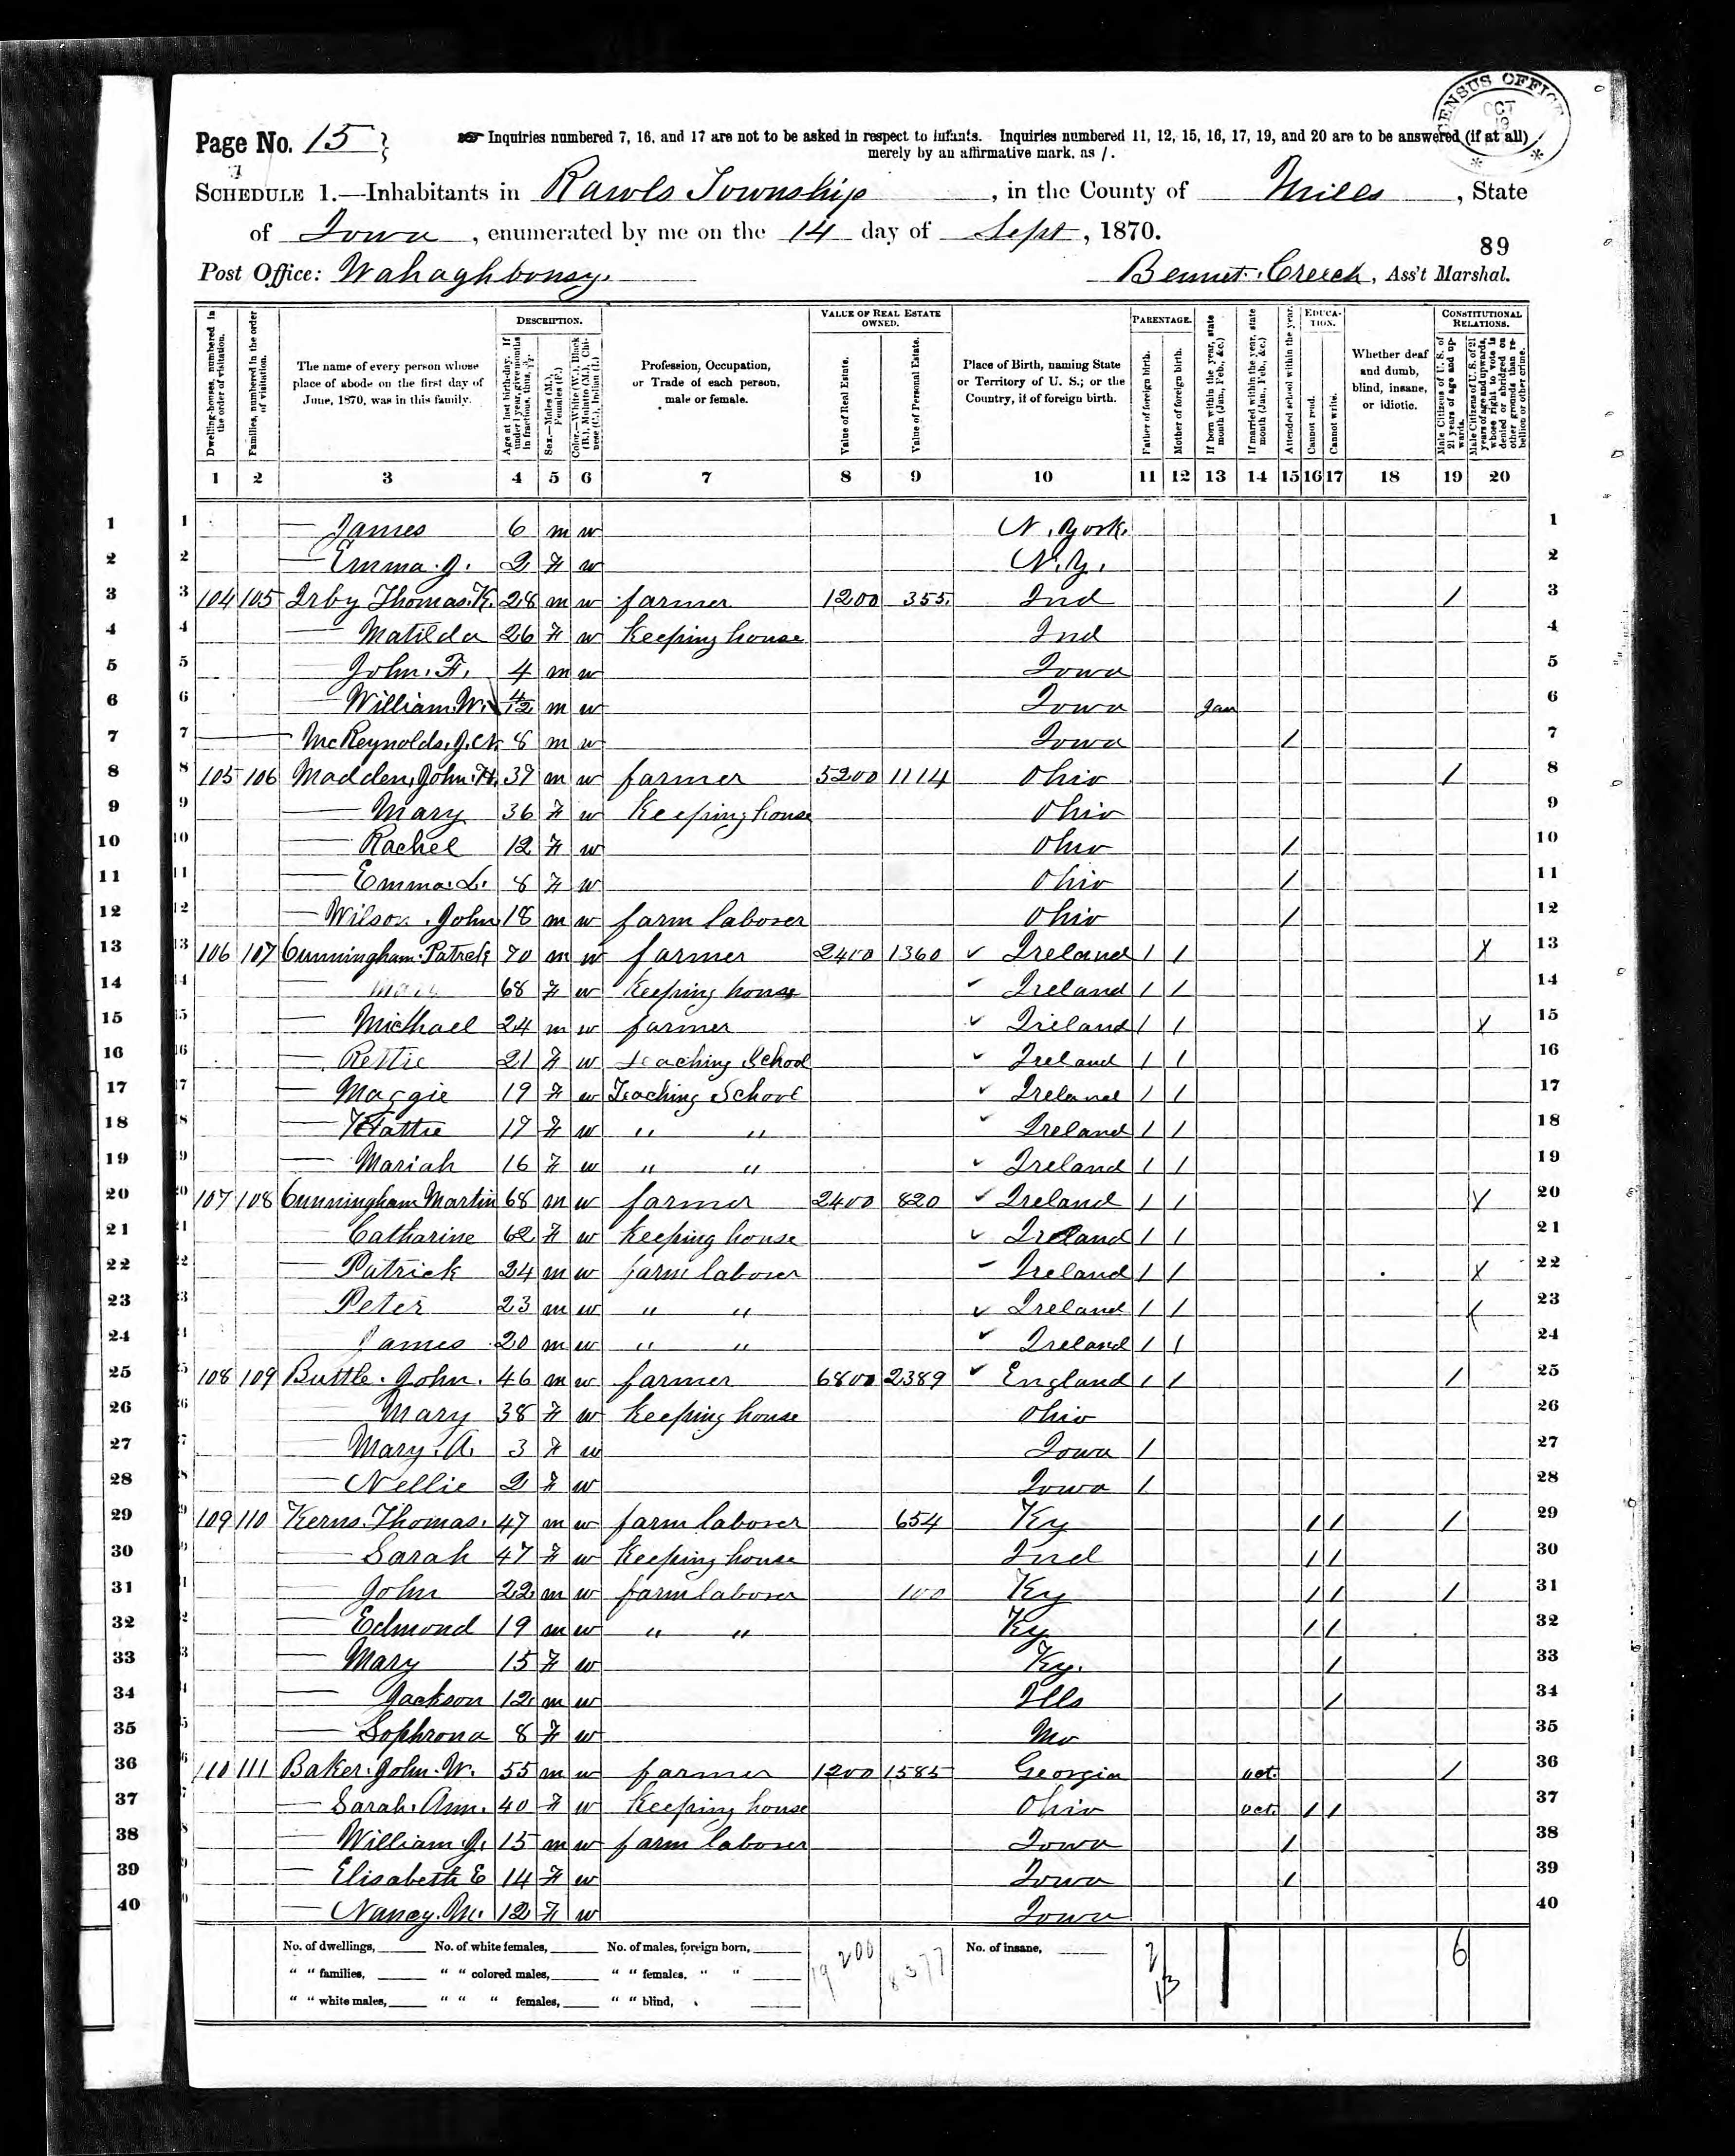 CENSUS OFFICE OCT
Page No. 15
Inquiries numbered 7, 16, and 17 are not to be asked in respect to infants. Inquiries numbered 11, 12, 15, 16, 17, 19, and 20 are to be answered (if at all)
merely by an affirmative mark, as /.
SCHEDULE 1.—Inhabitants in Rawls Township, in the County of Mills, State
of Iowa, enumerated by me on the 14 day of Sept, 1870.
89
Post Office: Wahaghbonsy. Bennet Creech, Ass't Marshal.
Dwelling-houses, numbered in the order of visitation.
Families, numbered in the order of visitation.
The name of every person whose place of abode on the first day of June, 1870, was in this family.
DESCRIPTION.
Age at last birth-day. If under 1 year, give months in fractions, thus, 3/12.
Sex.—Males (M.), Females (F.)
Color.—White (W.), Black (B.), Mulatto (M.), Chinese (C.), Indian (I.)
Profession, Occupation, or Trade of each person, male or female.
VALUE OF REAL ESTATE OWNED.
Value of Real Estate.
Value of Personal Estate.
Place of Birth, naming State or Territory of U. S.; or the Country, if of foreign birth.
PARENTAGE.
Father of foreign birth.
Mother of foreign birth.
If born within the year, state month (Jan., Feb., &c.)
If married within the year, state month (Jan., Feb., &c.)
EDUCATION.
Attended school within the year.
Cannot read.
Cannot write.
Whether deaf and dumb, blind, insane, or idiotic.
CONSTITUTIONAL RELATIONS.
Male Citizens of U. S. of 21 years of age and upwards.
Male Citizens of U. S. of 21 years of age and upwards, whose right to vote is denied or abridged on other grounds than rebellion or other crime.
1 2 3 4 5 6 7 8 9 10 11 12 13 14 15 16 17 18 19 20
1 — James 6 m w N. York. 1
2 — Emma J. 2 F w N.Y. 2
3 104 105 Irby Thomas K. 28 m w farmer 1200 355 Ind / 3
4 — Matilda 26 F w Keeping house Ind 4
5 — John. F. 4 m w Iowa 5
6 — William W. 4/12 m w Iowa Jan 6
7 — McReynolds, J. 8 m w Iowa / 7
8 105 106 Madden, John H. 37 m w farmer 5200 1114 Ohio / 8
9 — Mary 36 F w Keeping house Ohio 9
10 — Rachel 12 F w Ohio / 10
11 — Emma. L. 8 F w Ohio / 11
12 — Wilson, John 18 m w farm laborer Ohio / 12
13 106 107 Cunningham Patrck 70 m w farmer 2400 1360 ✓ Ireland / / X 13
14 — 68 F w Keeping house ✓ Ireland / / 14
15 — Michael 24 m w farmer ✓ Ireland / / X 15
16 — Rettie 21 F w teaching School ✓ Ireland / / 16
17 — Maggie 19 F w Teaching School ✓ Ireland / / 17
18 — Hattie 17 F w " " ✓ Ireland / / 18
19 — Mariah 16 F w " " ✓ Ireland / / 19
20 107 108 Cunningham Martin 68 m w farmer 2400 820 ✓ Ireland / / X 20
21 — Catharine 62 F w Keeping house ✓ Ireland / / 21
22 — Patrick 24 m w farm laborer Ireland / / X 22
23 — Peter 23 m w " " ✓ Ireland / / 23
24 — James 20 m w " " ✓ Ireland / / 24
25 108 109 Buttle. John. 46 m w farmer 6800 2389 ✓ England / / / 25
26 — Mary 38 F w Keeping house Ohio 26
27 — Mary. A. 3 F w Iowa / 27
28 — Nellie 2 F w Iowa / 28
29 109 110 Kerns. Thomas. 47 m w farm laborer 654 Ky / / / 29
30 — Sarah 47 F w Keeping house Ind / / 30
31 — John 22 m w farm laborer 100 Ky / / / 31
32 — Edmond 19 m w " " Ky / / 32
33 — Mary 15 F w Ky. / 33
34 — Jackson 12 m w Ills / 34
35 — Sophrona 8 F w Mo 35
36 110 111 Baker. John. W. 55 m w farmer 1200 1585 Georgia oct. / 36
37 — Sarah. Ann. 40 F w Keeping house Ohio oct. / / 37
38 — William J. 15 m w farm laborer Iowa / 38
39 — Elisabeth E 14 F w Iowa / 39
40 — Nancy. M. 12 F w Iowa 40
No. of dwellings, No. of white females, No. of males, foreign born, 19200 8377 No. of insane, 6
" " families, " " colored males, " " females, " " 13
" " white males, " " " females, " " blind,